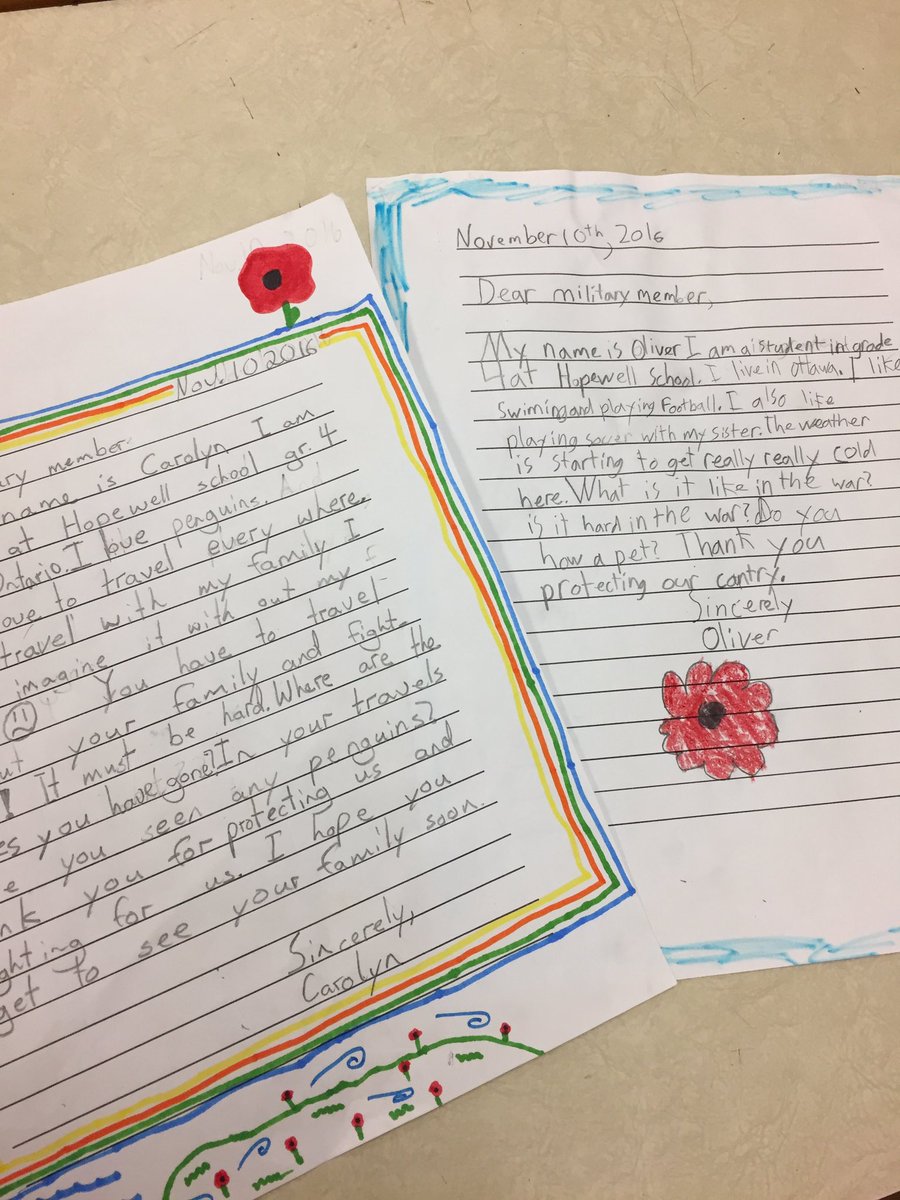 Nov. 10 2016
ary member.
name is Carolyn I am
at Hopewell school gr. 4
Ontario. I love penguins.
ove to travel every where.
travel with my family I
imagine it with out my
You have to travel
ut your family and fight.
! It must be hard. Where are the
es you have gone? In your travels
e you seen any penguins?
nk you for protecting us and
ghting for us. I hope you
get to see your family soon.
Sincerely,
Carolyn
November 10th, 2016
Dear military member,
My name is Oliver I am a student in grade
4 at Hopewell School. I live in Ottawa. I like
swiming and playing football. I also like
playing soccer with my sister. The weather
is starting to get really really cold
here. What is it like in the war?
is it hard in the war? Do you
how a pet? Thank you
protecting our cantry.
Sincerely
Oliver